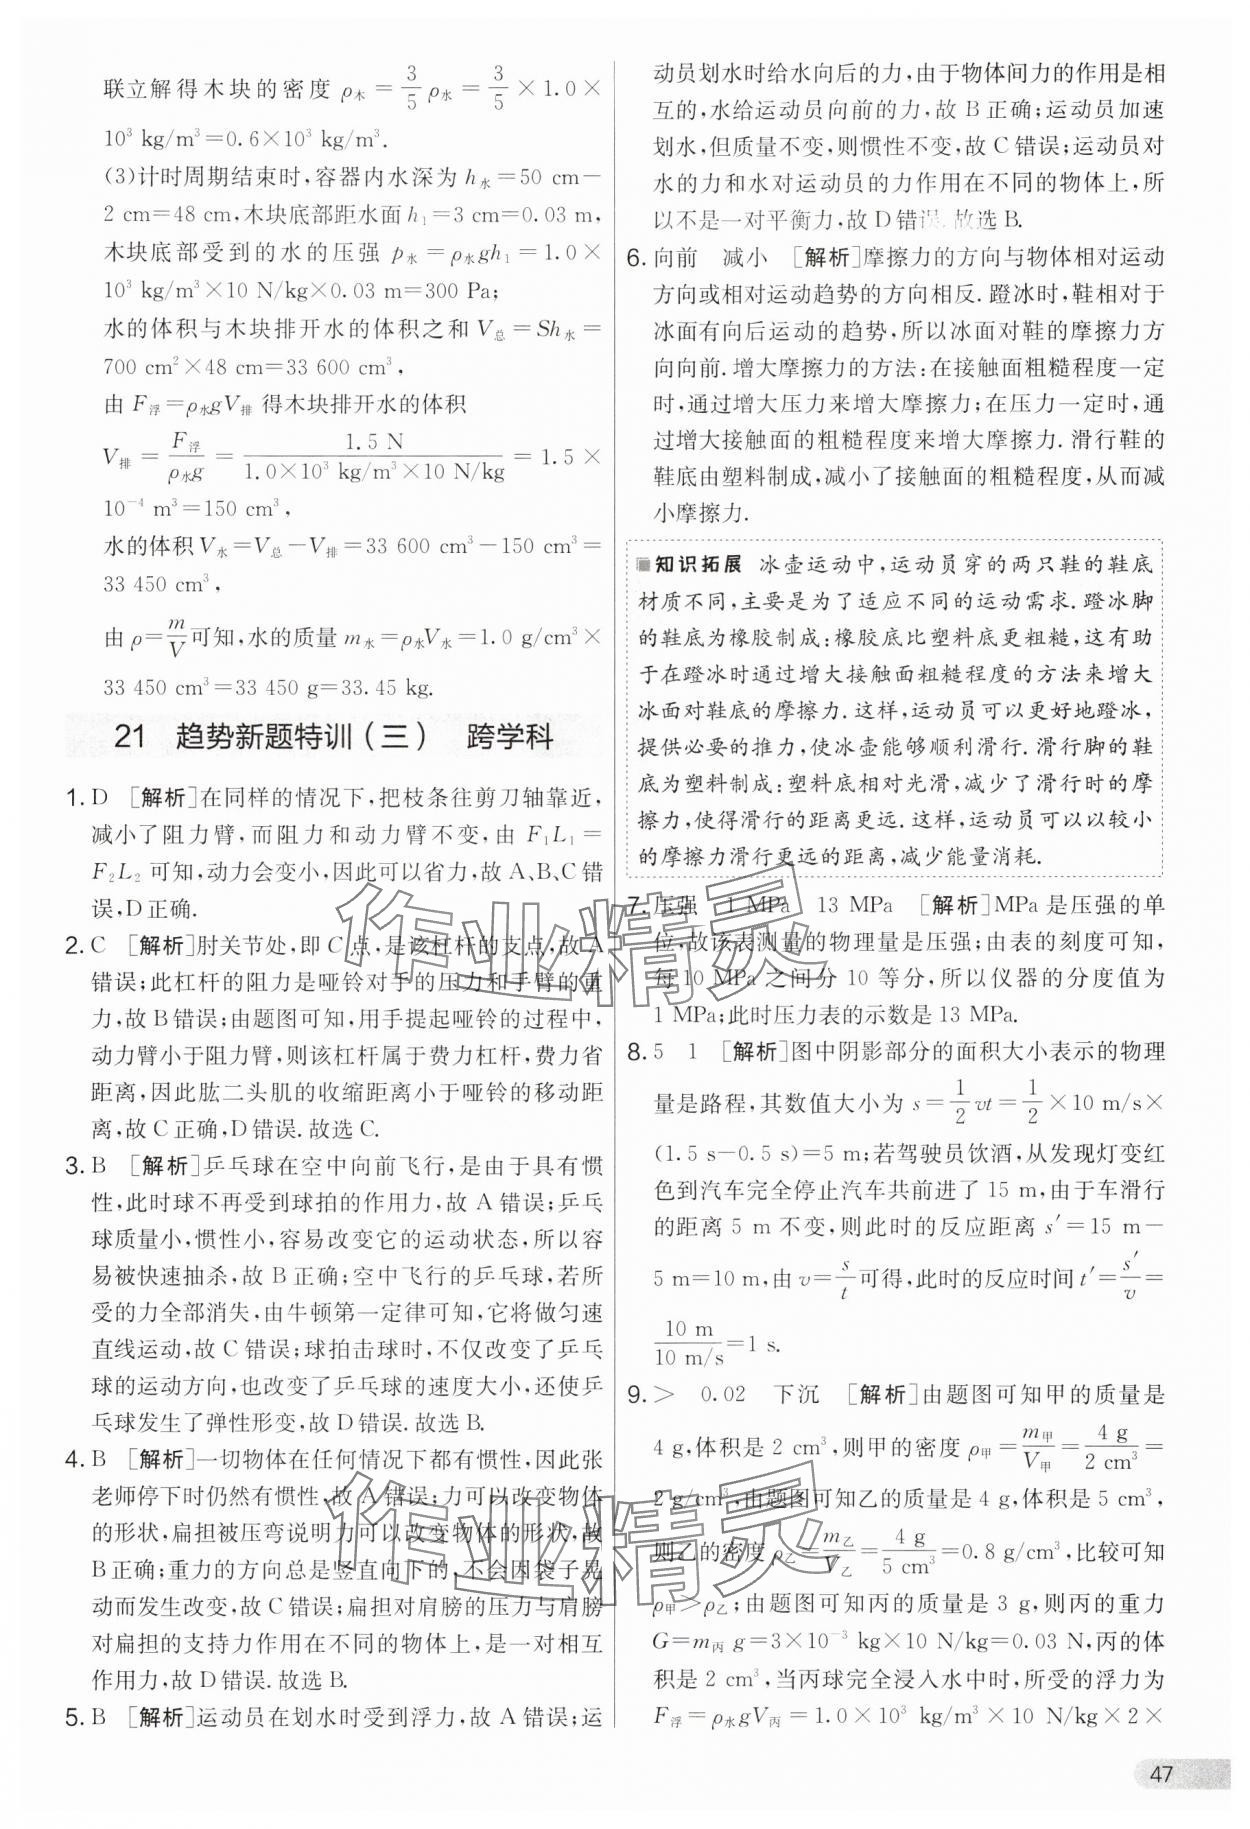 联立解得木块的密度 ρ木 = 3/5 ρ水 = 3/5 × 1.0 ×
10³ kg/m³=0.6×10³ kg/m³.
(3)计时周期结束时,容器内水深为 h水=50 cm-
2 cm=48 cm,木块底部距水面 h₁=3 cm=0.03 m,
木块底部受到的水的压强 p水=ρ水gh₁=1.0×
10³ kg/m³×10 N/kg×0.03 m=300 Pa;
水的体积与木块排开水的体积之和 V总=Sh水=
700 cm²×48 cm=33 600 cm³,
由 F浮=ρ水gV排 得木块排开水的体积
V排 = F浮/ρ水g = 1.5 N/1.0×10³ kg/m³×10 N/kg = 1.5 ×
10⁻⁴ m³=150 cm³,
水的体积V水=V总-V排=33 600 cm³-150 cm³=
33 450 cm³,
由 ρ=m/V可知,水的质量 m水=ρ水V水=1.0 g/cm³×
33 450 cm³=33 450 g=33.45 kg.
21 趋势新题特训(三) 跨学科
1. D [解析]在同样的情况下,把枝条往剪刀轴靠近,
减小了阻力臂,而阻力和动力臂不变,由 F₁L₁=
F₂L₂ 可知,动力会变小,因此可以省力,故A、B、C错
误,D正确.
2. C [解析]肘关节处,即C点,是该杠杆的支点,故A
错误;此杠杆的阻力是哑铃对手的压力和手臂的重
力,故B错误;由题图可知,用手提起哑铃的过程中,
动力臂小于阻力臂,则该杠杆属于费力杠杆,费力省
距离,因此肱二头肌的收缩距离小于哑铃的移动距
离,故C正确,D错误.故选C.
3. B [解析]乒乓球在空中向前飞行,是由于具有惯
性,此时球不再受到球拍的作用力,故A错误;乒乓
球质量小,惯性小,容易改变它的运动状态,所以容
易被快速抽杀,故B正确;空中飞行的乒乓球,若所
受的力全部消失,由牛顿第一定律可知,它将做匀速
直线运动,故C错误;球拍击球时,不仅改变了乒乓
球的运动方向,也改变了乒乓球的速度大小,还使乒
乓球发生了弹性形变,故D错误.故选B.
4. B [解析]一切物体在任何情况下都有惯性,因此张
老师停下时仍然有惯性,故A错误;力可以改变物体
的形状,扁担被压弯说明力可以改变物体的形状,故
B正确;重力的方向总是竖直向下的,不会因袋子晃
动而发生改变,故C错误;扁担对肩膀的压力与肩膀
对扁担的支持力作用在不同的物体上,是一对相互
作用力,故D错误.故选B.
5. B [解析]运动员在划水时受到浮力,故A错误;运
动员划水时给水向后的力,由于物体间力的作用是相
互的,水给运动员向前的力,故B正确;运动员加速
划水,但质量不变,则惯性不变,故C错误;运动员对
水的力和水对运动员的力作用在不同的物体上,所
以不是一对平衡力,故D错误.故选B.
6. 向前 减小 [解析]摩擦力的方向与物体相对运动
方向或相对运动趋势的方向相反.蹬冰时,鞋相对于
冰面有向后运动的趋势,所以冰面对鞋的摩擦力方
向向前.增大摩擦力的方法:在接触面粗糙程度一定
时,通过增大压力来增大摩擦力;在压力一定时,通
过增大接触面的粗糙程度来增大摩擦力.滑行鞋的
鞋底由塑料制成,减小了接触面的粗糙程度,从而减
小摩擦力.
知识拓展 冰壶运动中,运动员穿的两只鞋的鞋底
材质不同,主要是为了适应不同的运动需求.蹬冰脚
的鞋底为橡胶制成:橡胶底比塑料底更粗糙,这有助
于在蹬冰时通过增大接触面粗糙程度的方法来增大
冰面对鞋底的摩擦力.这样,运动员可以更好地蹬冰,
提供必要的推力,使冰壶能够顺利滑行.滑行脚的鞋
底为塑料制成:塑料底相对光滑,减少了滑行时的摩
擦力,使得滑行的距离更远.这样,运动员可以以较小
的摩擦力滑行更远的距离,减少能量消耗.
7. 压强 1 MPa 13 MPa [解析]MPa是压强的单
位,故该表测量的物理量是压强;由表的刻度可知,
每10 MPa之间分10等分,所以仪器的分度值为
1 MPa;此时压力表的示数是13 MPa.
8. 5 1 [解析]图中阴影部分的面积大小表示的物理
量是路程,其数值大小为 s=1/2 vt=1/2×10 m/s×
(1.5 s-0.5 s)=5 m;若驾驶员饮酒,从发现灯变红
色到汽车完全停止汽车共前进了15 m,由于车滑行
的距离5 m不变,则此时的反应距离 s′=15 m-
5 m=10 m,由 v=s/t可得,此时的反应时间 t′=s′/v=
10 m/10 m/s=1 s.
9. > 0.02 下沉 [解析]由题图可知甲的质量是
4 g,体积是2 cm³,则甲的密度 ρ甲=m甲/V甲=4 g/2 cm³=
2 g/cm³,由题图可知乙的质量是4 g,体积是5 cm³,
则乙的密度 ρ乙=m乙/V乙=4 g/5 cm³=0.8 g/cm³,比较可知
ρ甲>ρ乙;由题图可知丙的质量是3 g,则丙的重力
G=m丙 g=3×10⁻³ kg×10 N/kg=0.03 N,丙的体
积是2 cm³,当丙球完全浸入水中时,所受的浮力为
F浮=ρ水gV丙=1.0×10³ kg/m³×10 N/kg×2×
47
作业精灵
作业精灵